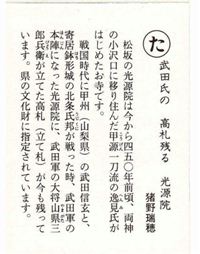 た
武田氏の 高札残る 光源院
猪野瑞穂
松坂の光源院は今から四五〇年前頃、両神
の小沢口に移り住んだ甲源一刀流の逸見氏が
はじめたお寺です。
戦国時代に甲州（山梨県）の武田信玄と、
寄居鉢形城の北条氏邦が戦った時、武田軍の
本陣になった光源院に、武田軍の大将山県三
郎兵衛が立てた高札（立て札）が今も残って
います。県の文化財に指定されています。